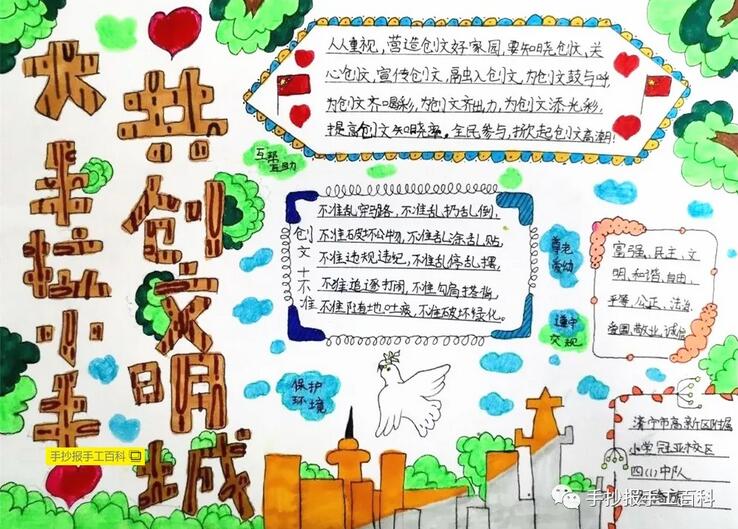 大手拉小手
共创文明城
人人重视,营造创文好家园,要知晓创文,关
心创文,宣传创文,融入创文,为创文鼓与呼,
为创文齐喝彩,为创文齐出力,为创文添光彩,
提高创文知晓率,全民参与,掀起创文高潮!
互帮
互助
创文十不准
不准乱穿马路,不准乱扔乱倒,
不准破坏公物,不准乱涂乱贴,
不准违规违纪,不准乱停乱摆,
不准追逐打闹,不准勾肩搭背,
不准随地吐痰,不准破坏绿化。
尊老
爱幼
遵守
交规
保护
环境
富强、民主、文
明、和谐、自由、
平等、公正、法治、
爱国、敬业、诚信
济宁市高新区附属
小学冠亚校区
四(1)中队
手抄报手工百科
手抄报手工百科